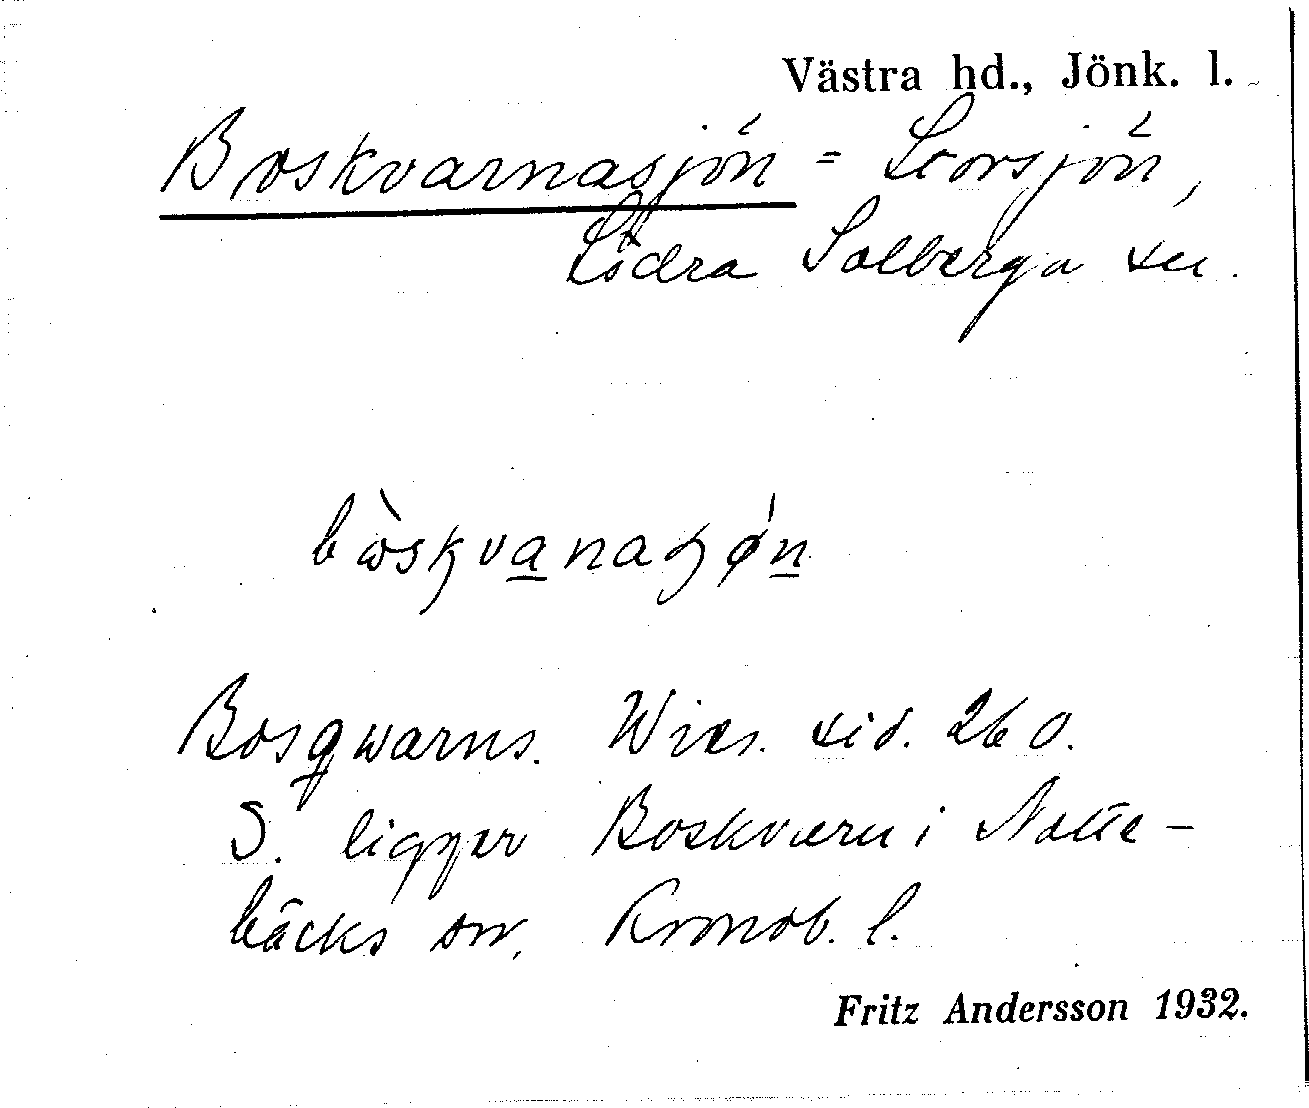 Västra hd., Jönk. l.
Boskvarnasjön = Storsjön,
Södra Solberga sn.
Bosqwarns. Wies. sid. 260.
S. ligger Boskvarn i Notte-
bäcks sn, Kronob. l.
Fritz Andersson 1932.